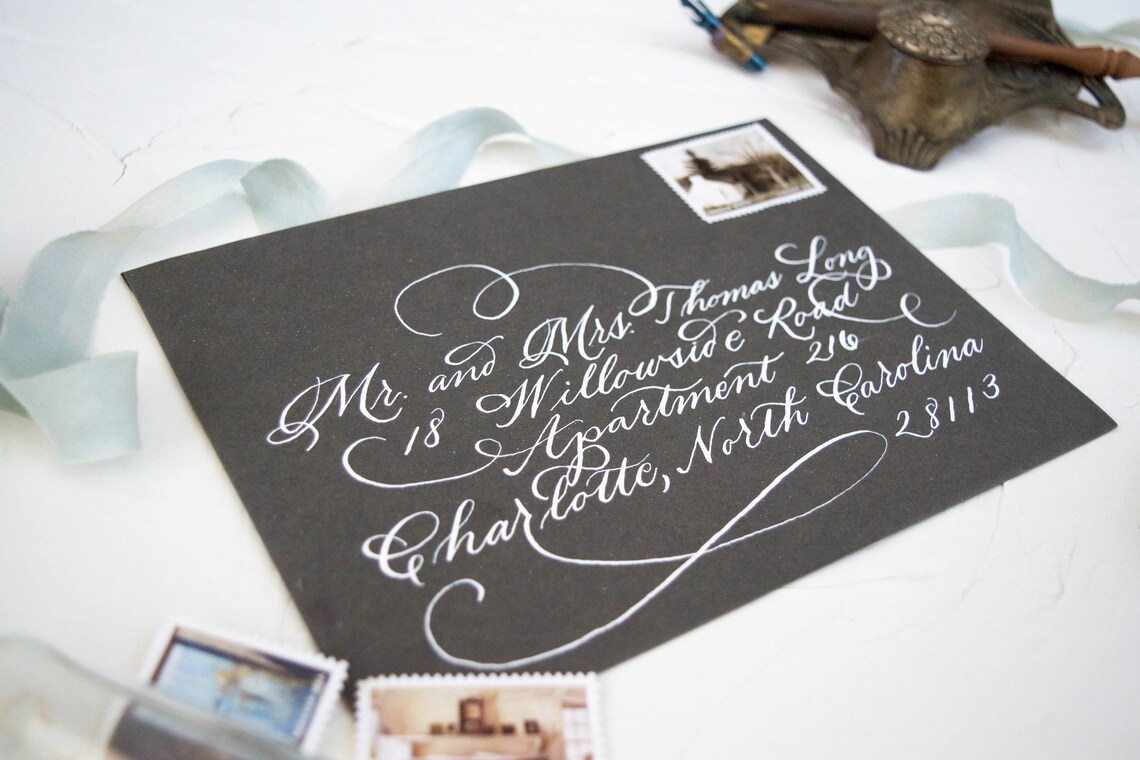 Mr. and Mrs. Thomas Long
18 Willowside Road
Apartment 216
Charlotte, North Carolina
28113